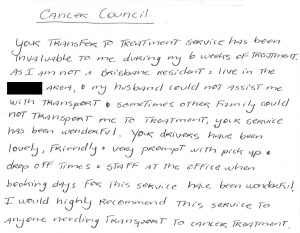 Cancer Council
Your transfer to treatment service has been
invaluable to me during my 6 weeks of treatment.
As I am not a Brisbane resident & live in the
area, & my husband could not assist me
with transport & sometimes other family could
not transport me to treatment, your service
has been wonderful. Your drivers have been
lovely, friendly & very prompt with pick up &
drop off times & staff at the office when
booking days for this service have been wonderful.
I would highly recommend this service to
anyone needing transport to cancer treatment.